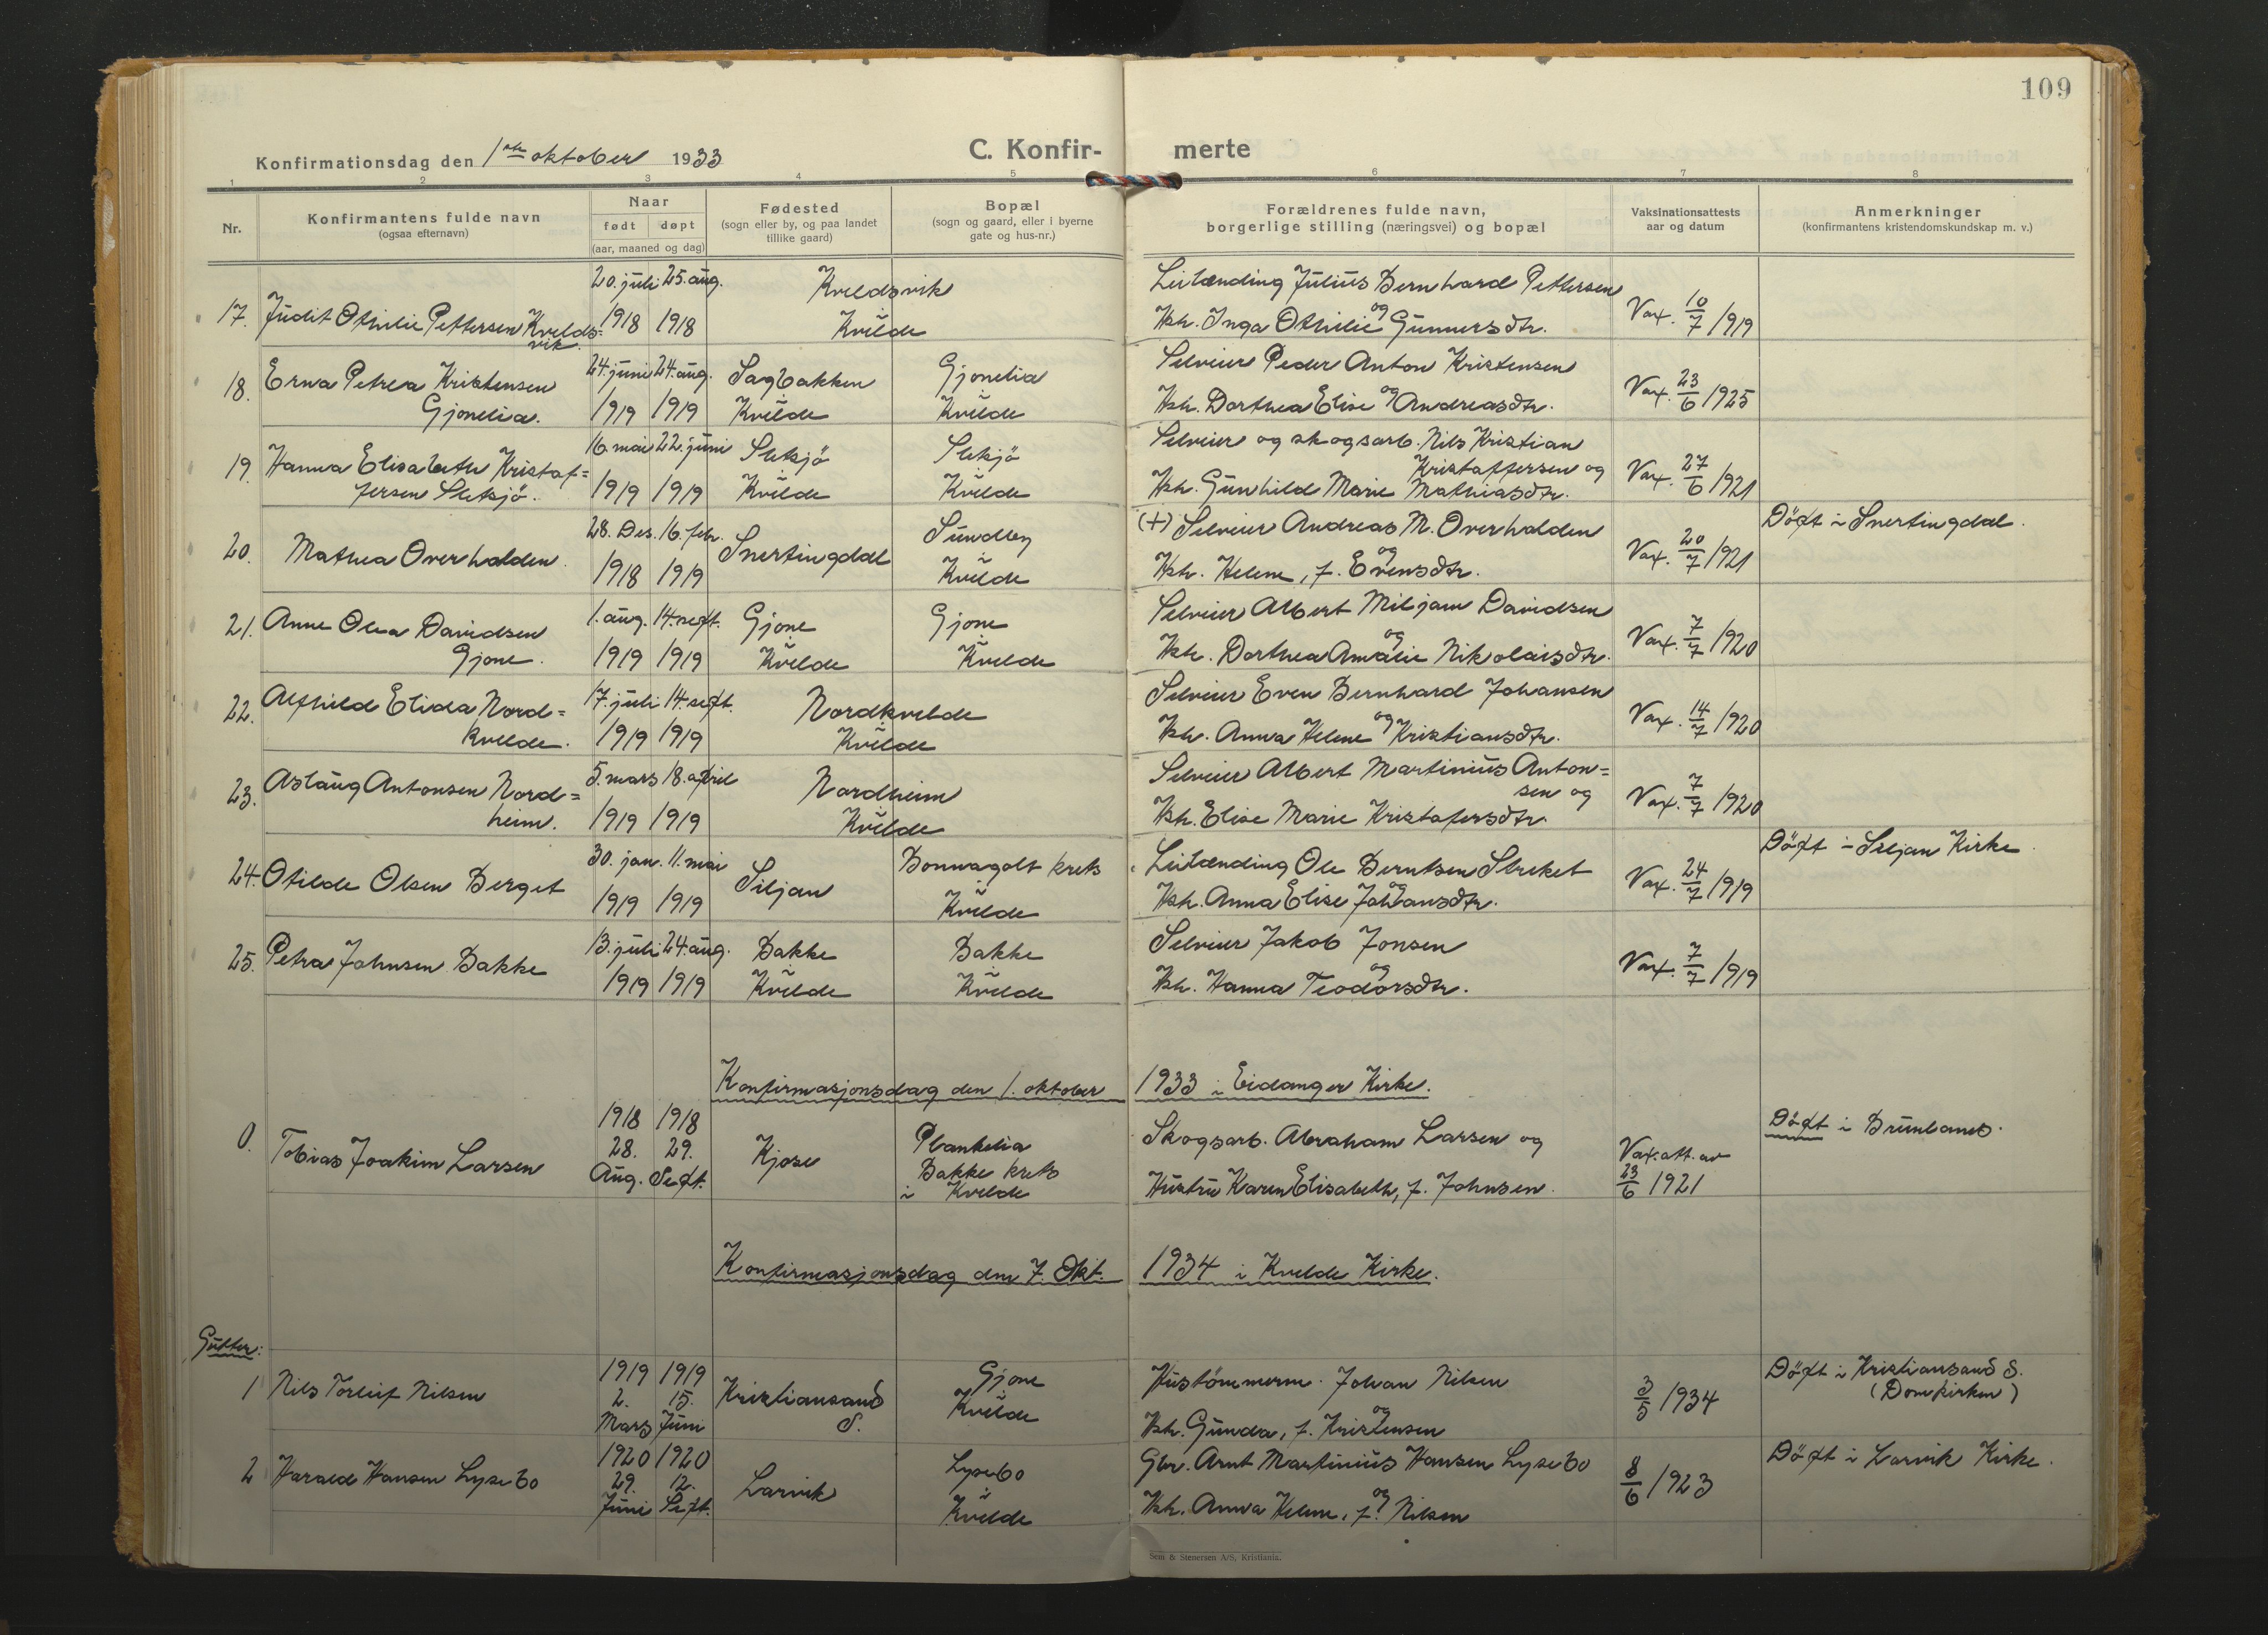 109
Konfirmationsdag den 1ste oktober 1933
C. Konfir- merte
1 2 3 4 5 6 7 8
Nr.
Konfirmantens fulde navn
(ogsaa efternavn)
Naar
født døpt
(aar, maaned og dag)
Fødested
(sogn eller by, og paa landet
tillike gaard)
Bopæl
(sogn og gaard, eller i byerne
gate og hus-nr.)
Forældrenes fulde navn,
borgerlige stilling (næringsvei) og bopæl
Vaksinationsattests
aar og datum
Anmerkninger
(konfirmantens kristendomskundskap m. v.)
20. juli 25. aug. Kveldsvik Leilænding Julius Bernhard Pettersen
17. Judit Othilie Pettersen Kvelds= 1918 1918 Kvelde og Vax. 10/7 1919
vik. Hstr. Inga Othilie Gunnersdtr.
18. Erna Petrea Kristensen 24. juni 24. aug. Sagbakken Gjonelia Selveier Peder Anton Kristensen Vax. 23/6 1925
Gjonelia. 1919 1919 Kvelde Kvelde Hstr. Dorthea Elise og Andreasdtr.
19. Hanna Elisabeth Kristof= 16. mai 22. juni Sletsjö Sletsjö Selveier og skogsarb. Nils Kristian
fersen Sletsjö. 1919 1919 Kvelde Kvelde Kristoffersen og Vax. 27/6 1921
Hstr. Gunhild Marie Mathiasdtr.
20. Mathea Overhalden. 28. Des. 16. febr. Snertingdal Sundby (+) Selveier Andreas M. Overhalden Vax. 20/7 1921 Döpt i Snertingdal.
1918 1919 Kvelde og
Hstr. Helene, f. Evensdtr.
21. Anne Olea Davidsen 1. aug. 14. sept. Gjone Gjone Selveier Albert Miljam Davidsen Vax. 7/7 1920
Gjone. 1919 1919 Kvelde Kvelde og
Hstr. Dorthea Amalie Nikolaisdtr.
22. Alfhild Elida Nord= 17. juli 14. sept. Nordkvelde Selveier Even Bernhard Johansen Vax. 14/7 1920
kvelde. 1919 1919 Kvelde Hstr. Anna Helene og Kristiansdtr.
23. Aslaug Antonsen Nord= 5. mars 18. april Nordheim Selveier Albert Martinius Anton=
heim. 1919 1919 Kvelde sen og Vax. 7/7 1920
Hstr. Elise Marie Kristofersdtr.
24. Otilde Olsen Berget 30. jan. 11. mai Siljan Bonnagolt krets Leilænding Ole Berntsen Streket Vax. 24/7 1919 Döpt i Siljan Kirke.
1919 1919 Kvelde og
Hstr. Anna Elise Johansdtr.
25. Petra Johnsen Bakke 13. juli 24. aug. Bakke Bakke Selveier Jakob Jonsen Vax. 7/7 1919
1919 1919 Kvelde Kvelde og
Hstr. Hanna Teodorsdtr.
Konfirmasjonsdag den 1. oktober 1933 i Eidanger Kirke.
0. Tobias Joakim Larsen 1918 1918 Kjose Plankelia Skogsarb. Abraham Larsen og Vax. att. av Döpt i Brunlanes.
28. 29. Bakke krets
Aug. Sept. i Kvelde Hustru Karen Elisabeth, f. Johnsen. 23/6 1921
Konfirmasjonsdag den 7. Okt. 1934 i Kvelde Kirke.
Gutter:
1 Nils Torleif Nilsen 1919 1919 Kristiansand Gjone Hustömmerm. Johan Nilsen 3/5 1934 Döpt i Kristiansand S.
2. 15. S. Kvelde og (Domkirken)
Mars Juni Hstr. Gunda, f. Kristensen
2 Harald Hansen Lysebo 1920 1920 Larvik Lysebo Gbr. Arnt Martinius Hansen Lysebo 8/6 1923 Döpt i Larvik Kirke.
29. 12. Kvelde og
Juni Sept. Hstr. Anna Helene, f. Nilsen
Sem & Stenersen A/S, Kristiania.